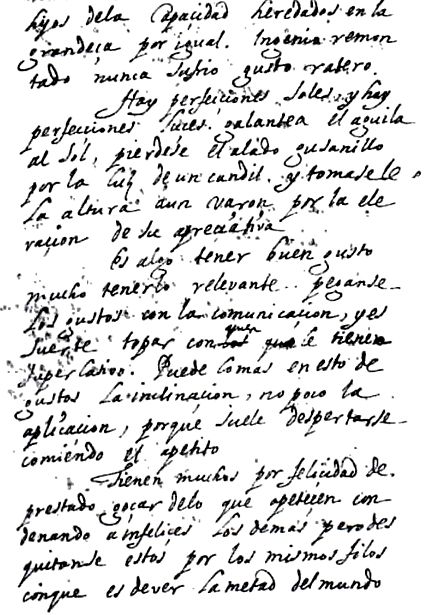 hijos dela Capacidad heredados en la
grandeça por igual. Ingenio remon
tado nunca sufrio gusto ratero.
Hay perfeciones soles, y hay
perfecciones luces. galantea el aguila
al Sol, pierdese el alado gusanillo
por la luz de un candil. y tomasele
la altura aun varon por la ele
vacion de su apreciativa
Es algo tener buen gusto
mucho tenerlo relevante. peganse
los gustos con la comunicacion, y es
suerte topar con quien le tiene
superlativo. Puede lo mas en esto de
gustos la inclinacion, no poco la
aplicacion, porque suele despertarse
comiendo el apetito
Tienen muchos por felicidad de
prestado goçar delo que apetecen con
denando a infelices los demas pero des
quitanse estos por los mismos filos
conque es dever la metad del mundo